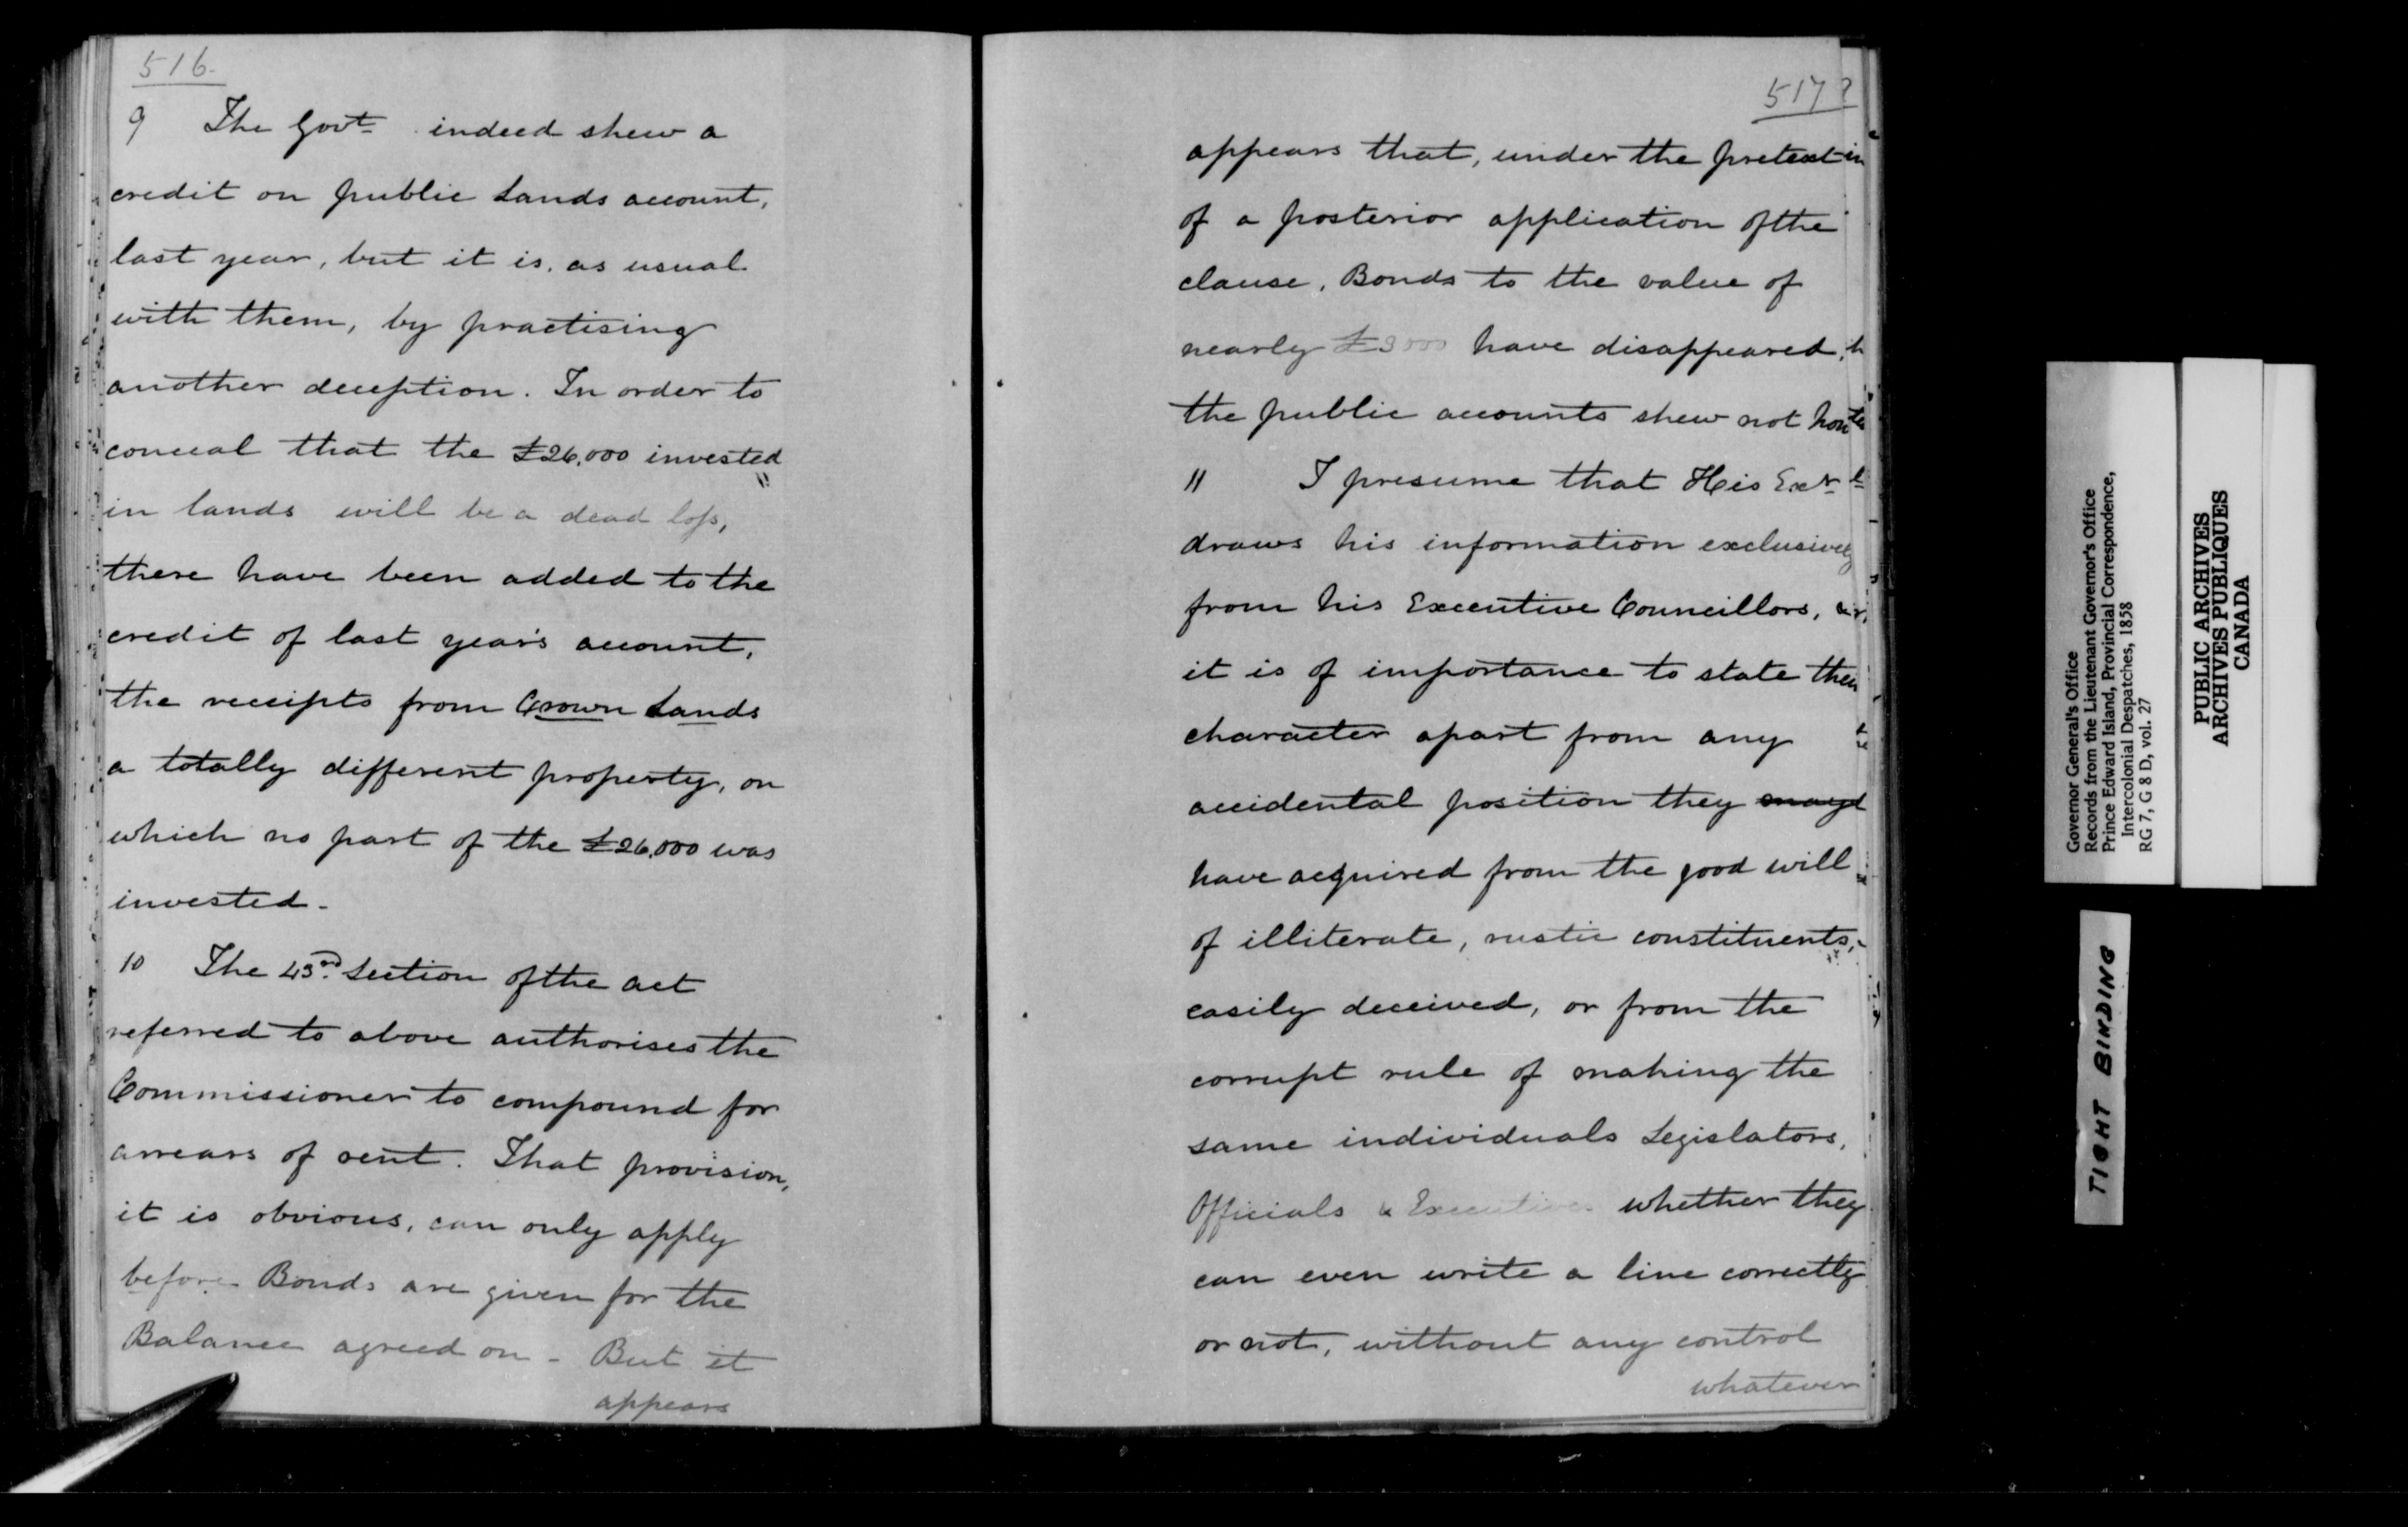 516.
9 The Govt indeed shew a
credit on public Lands account,
last year, but it is, as usual
with them, by practising
another deception. In order to
conceal that the £26,000 invested
in lands will be a dead loss,
there have been added to the
credit of last year's account,
the receipts from Crown Lands
a totally different property, on
which no part of the £26,000 was
invested.
10 The 43rd Section of the act
referred to above authorises the
Commissioner to compound for
arrears of rent. That provision,
it is obvious, can only apply
before Bonds are given for the
Balance agreed on - But it
appears
517
appears that, under the pretext
of a posterior application of the
clause, Bonds to the value of
nearly £3000 have disappeared,
the public accounts shew not how
11 I presume that His Exy
draws his information exclusively
from his Executive Councillors,
it is of importance to state their
character apart from any
accidental position they may
have acquired from the good will
of illiterate, rustic constituents,
easily deceived, or from the
corrupt rule of making the
same individuals Legislators,
Officials & Executives whether they
can even write a line correctly
or not, without any control
whatever
Governor General's Office
Records from the Lieutenant Governor's Office
Prince Edward Island, Provincial Correspondence,
Intercolonial Despatches, 1858
RG 7, G 8 D, vol. 27
PUBLIC ARCHIVES
ARCHIVES PUBLIQUES
CANADA
TIGHT BINDING